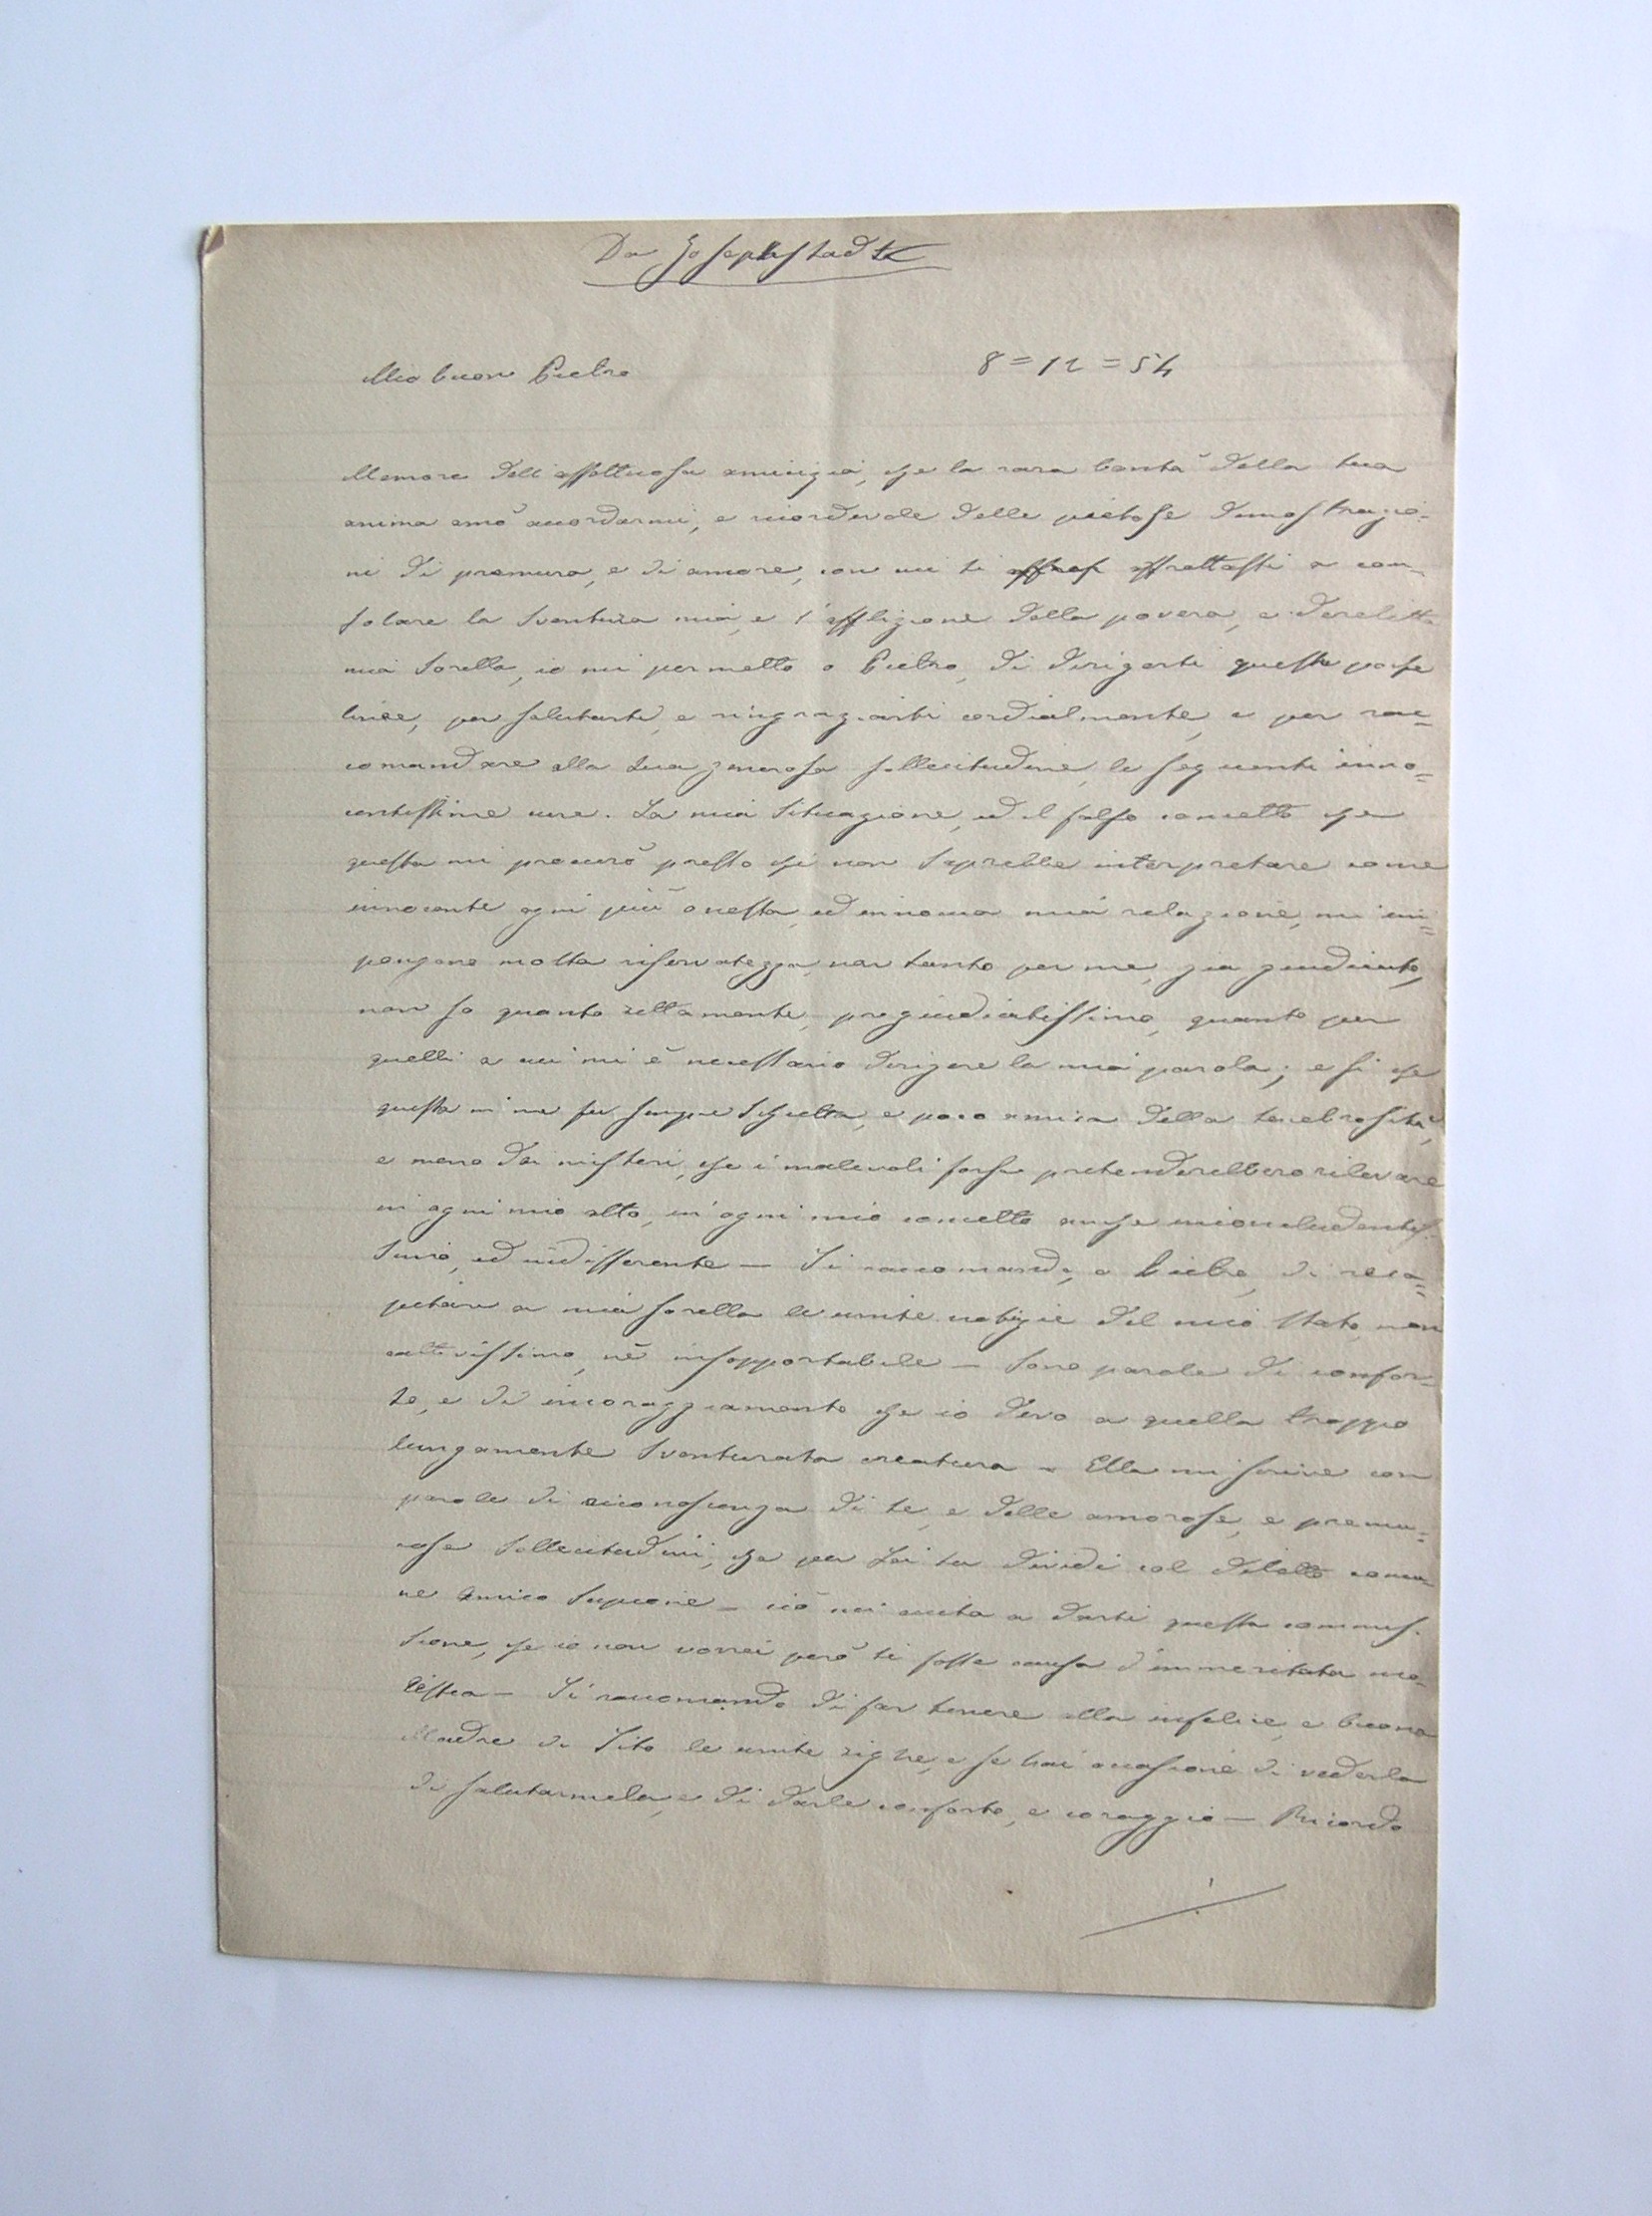 Da Josephstadt
Mio buon Pietro 8=12=54
Memore dell'affettuosa amicizia, che la rara bontà della tua
anima amò accordarmi, e ricordevole delle pietose dimostrazio-
ni di premura, e di amore, con cui ti affrettasti a con-
solare la sventura mia, e l'afflizione della povera, e derelitta
mia sorella, io mi permetto o Pietro, di dirigerti queste poche
linee, per salutarti, e ringraziarti cordialmente, e per rac=
comandare alla tua generosa sollecitudine le seguenti inno=
centissime cure. La mia situazione, ed il falso concetto che
questa mi procurò presso chi non saprebbe interpretare come
innocente ogni più onesta, ed innocua mia relazione, mi im=
pongono molta riservatezza, non tanto per me, già giudicato,
non so quanto rettamente, pregiudicatissimo, quanto per
quelli a cui mi è necessario dirigere la mia parola; e sì che
questa in me fu sempre schietta, e poco amica della tenebrosità,
e meno dei misteri, che i malevoli forse pretenderebbero rilevare
in ogni mio atto, in ogni mio concetto anche inconcludentis-
simo, ed indifferente — Ti raccomando, o Pietro, di reca=
pitare a mia sorella le unite notizie del mio stato, non
cattivissimo, nè insopportabile — Sono parole di confor-
to, e di incoraggiamento che io devo a quella troppo
lungamente sventurata creatura — Ella mi scrive con
parole di riconoscenza di te, e delle amorose, e premu=
rose sollecitudini, che per Lei tu dividi col diletto comu=
ne amico — ciò mi eccita a darti questa commis-
sione, che io non vorrei però ti fosse causa d'immeritata mo-
lestia — Ti raccomando di far tenere alla infelice, e buona
Madre di Tito le unite righe, e se hai occasione di vederla
di salutarmela, e di darle conforto, e coraggio — Ricordo